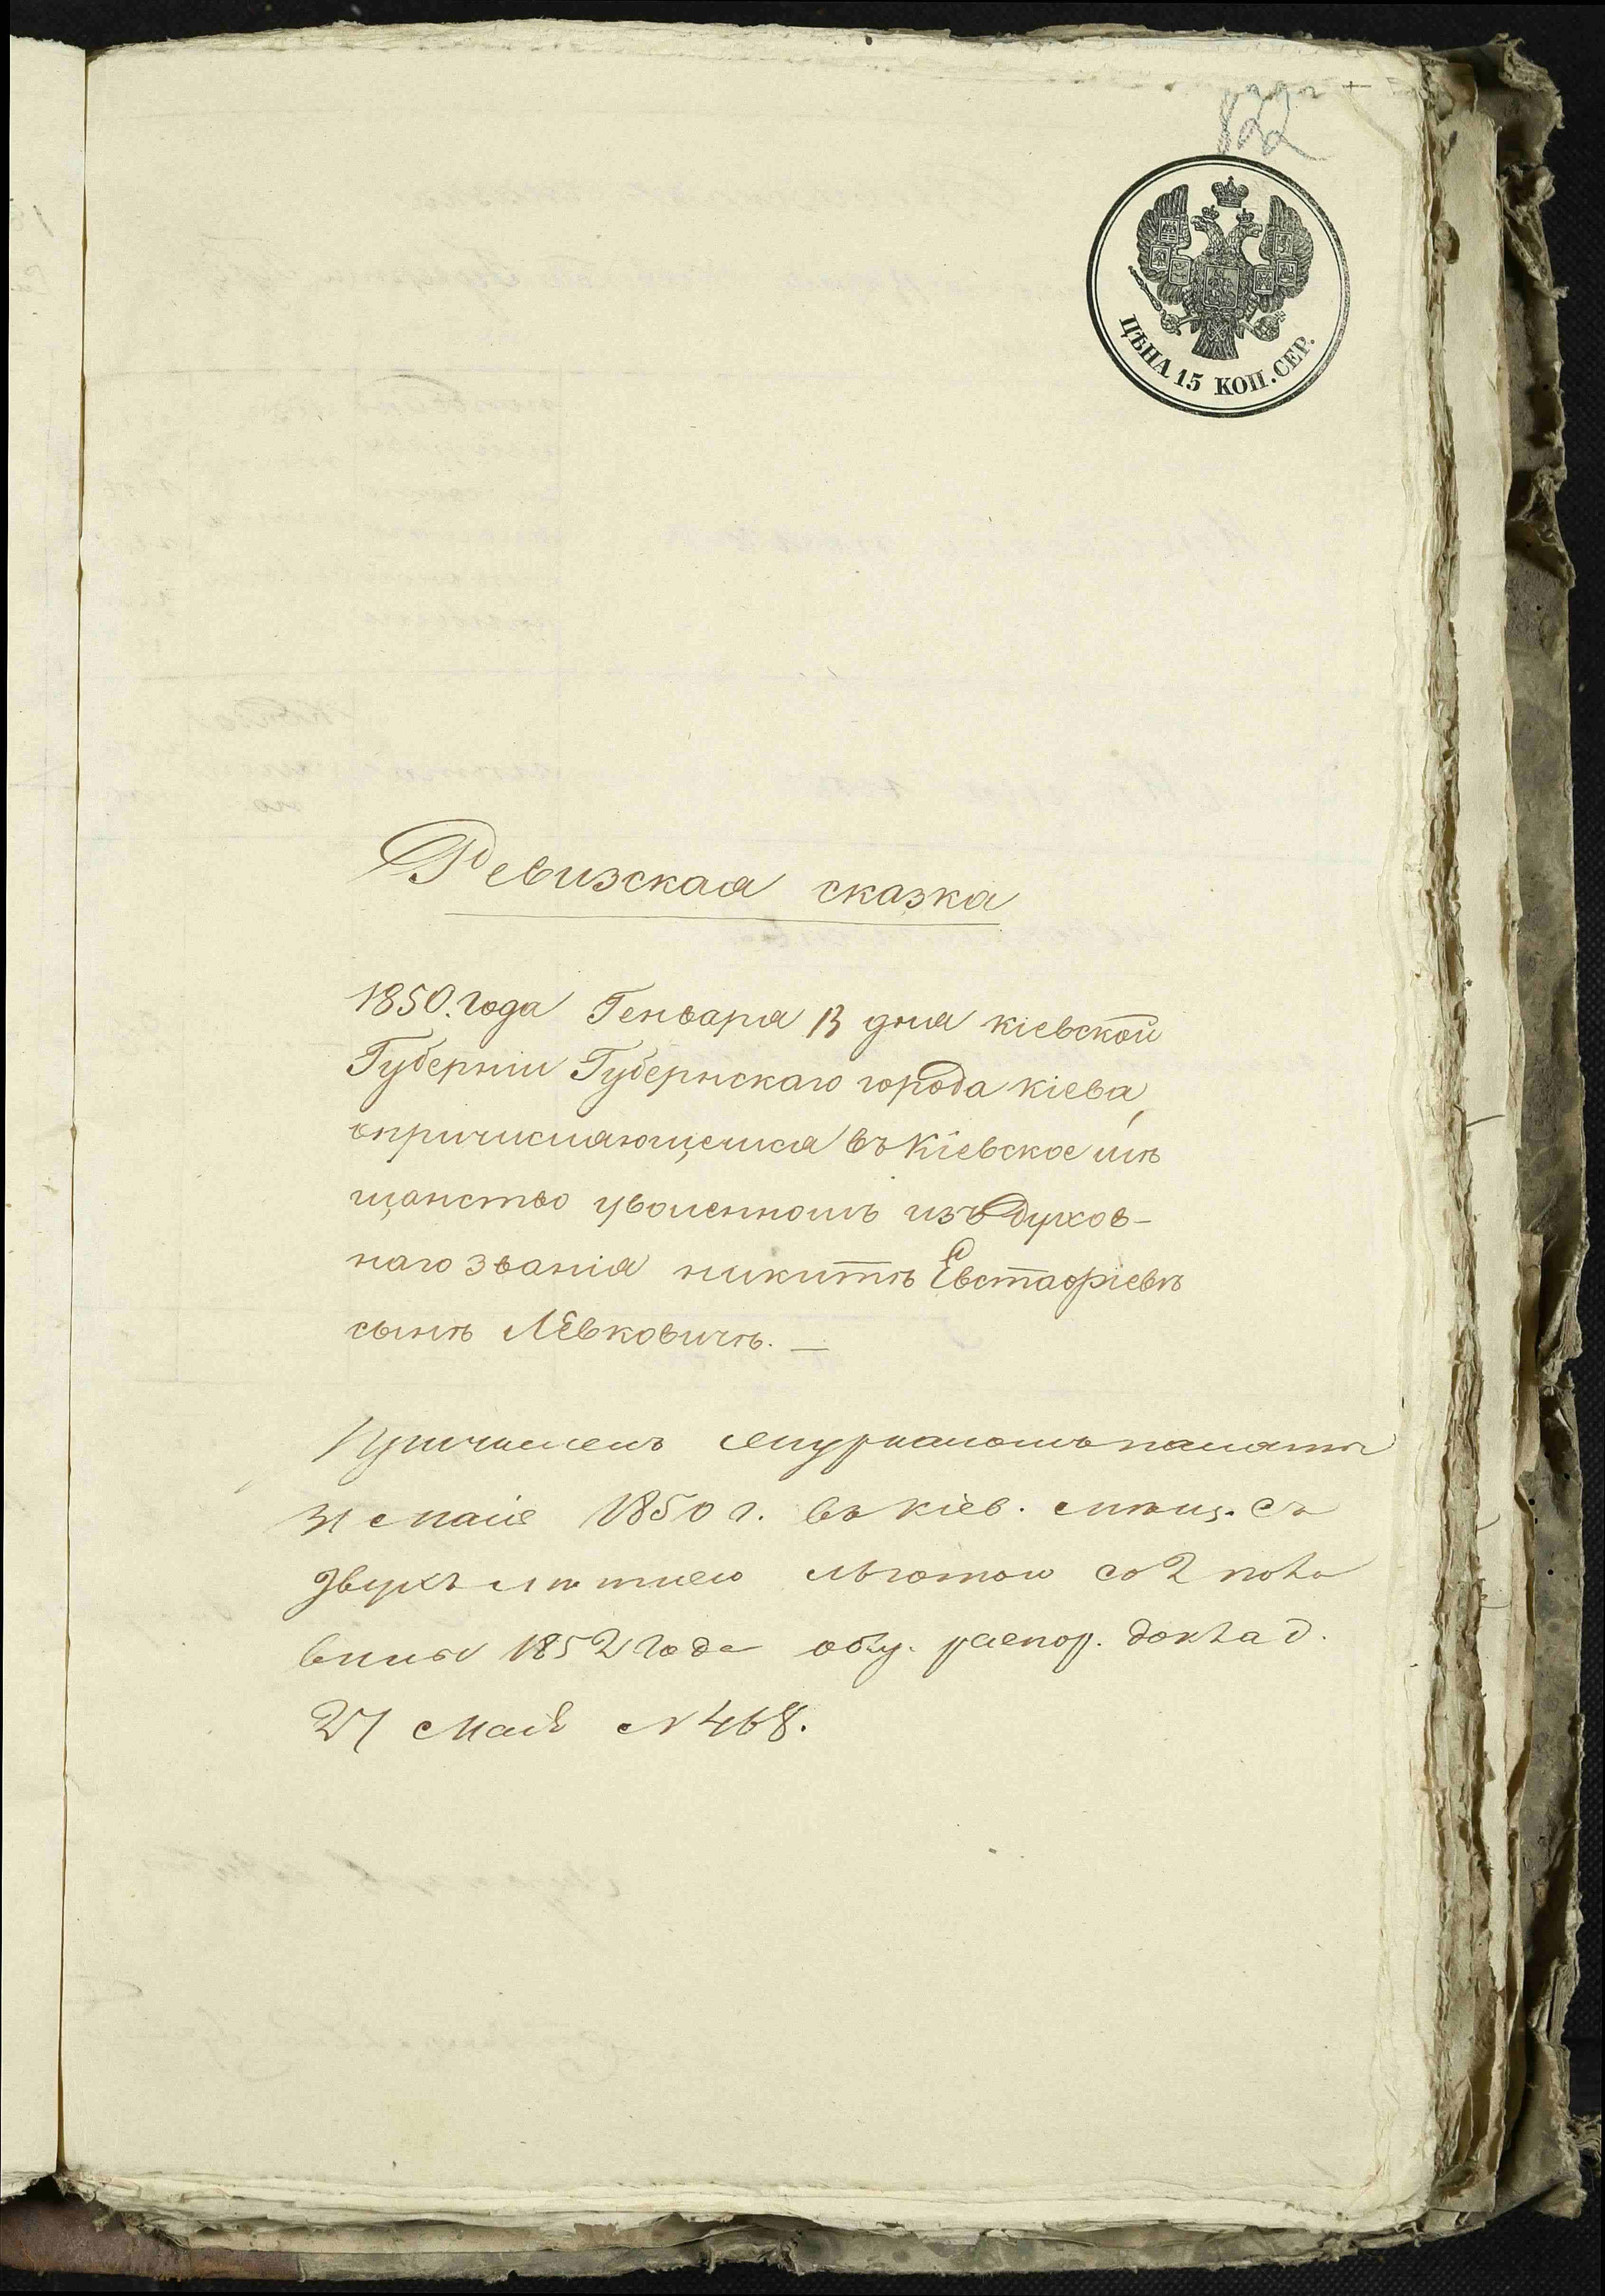 822
ЦѢНА 15 КОП. СЕР.
Ревизская сказка
1850. года Генваря 13 дня кіевской
Губерніи Губернскаго города кіева,
опричисляющемся въ Кіевское мѣ
щанство уволенномъ изъ духов-
наго званія никитѣ Евстафіевѣ
сынѣ Левковичѣ. —
Причисленъ журналомъ палаты
31 Маія 1850 г. въ кіев. мѣщ. съ
двухъ лѣтнею льготою со 2 поло
вины 1852 года общ. распор. доклад.
27 Мая № 468.